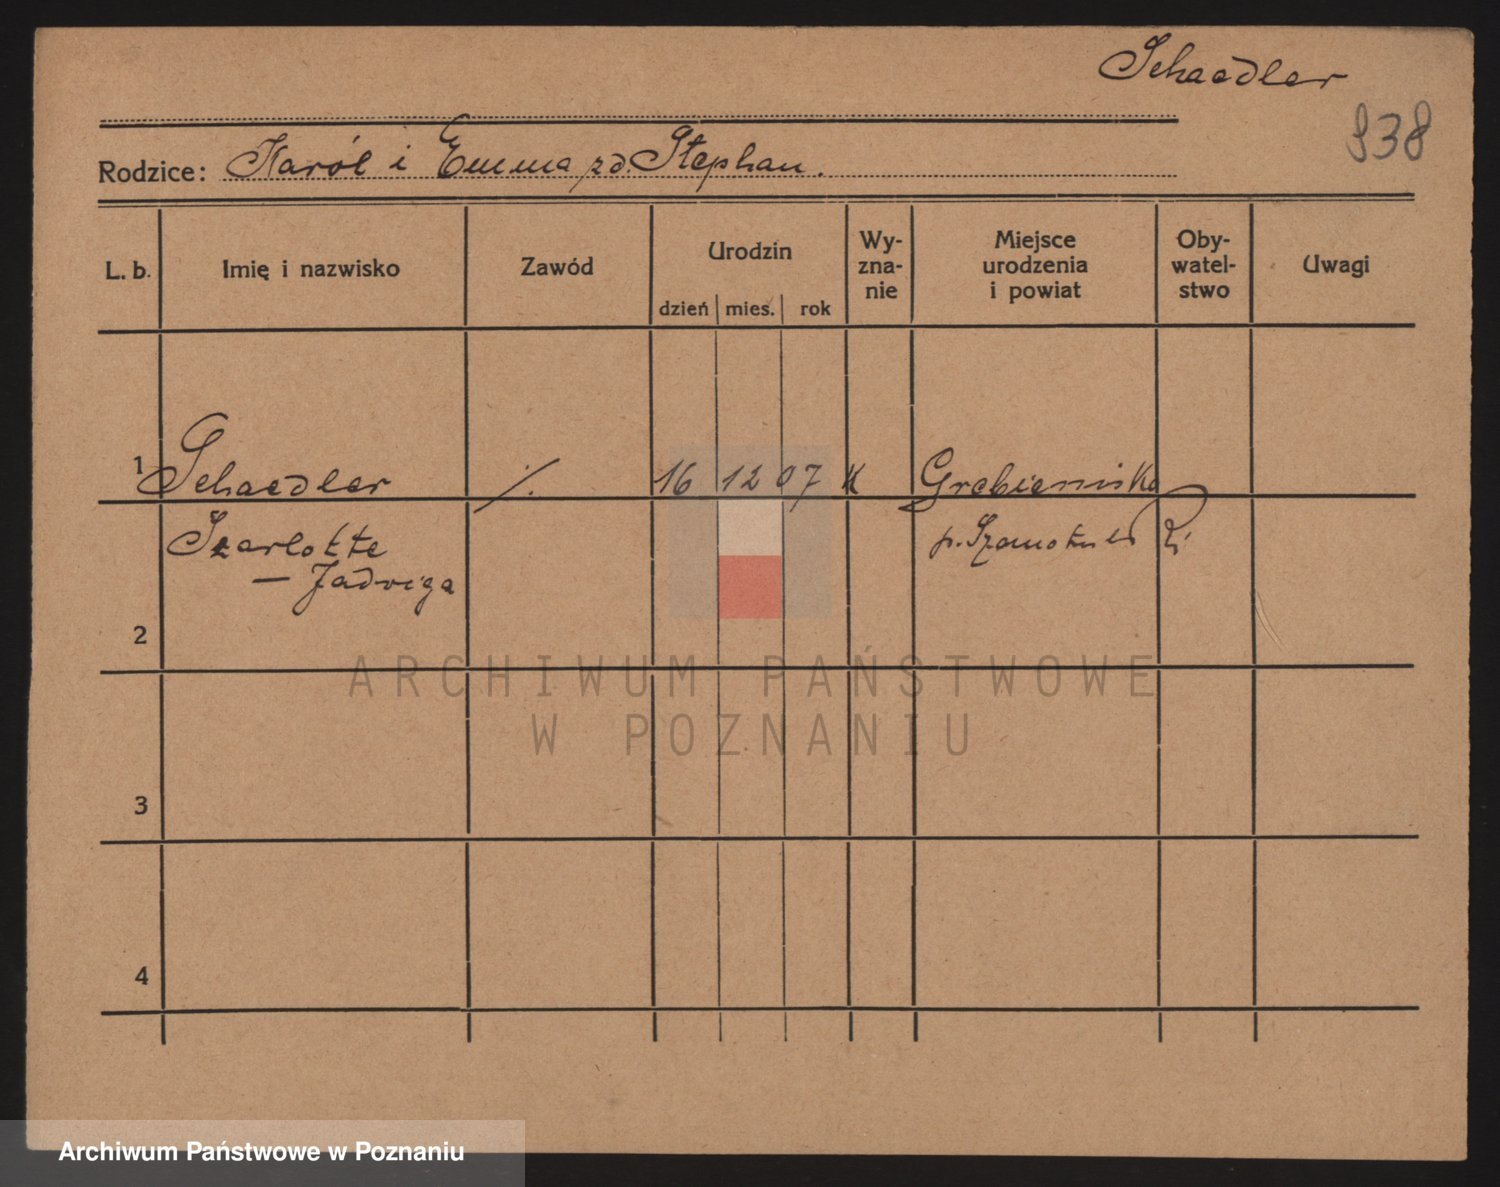 Schaedler
938
Rodzice: Karól i Emma zd. Stephan.
L. b. Imię i nazwisko Zawód Urodzin Wy-zna-nie Miejsce urodzenia i powiat Oby-watel-stwo Uwagi
dzień mies. rok
1 Schaedler ./. 16 12 07 K Grabienisko
Szarlotte p. Szamotuły
— Jadwiga
2
3
4
ARCHIWUM PAŃSTWOWE
W POZNANIU
Archiwum Państwowe w Poznaniu